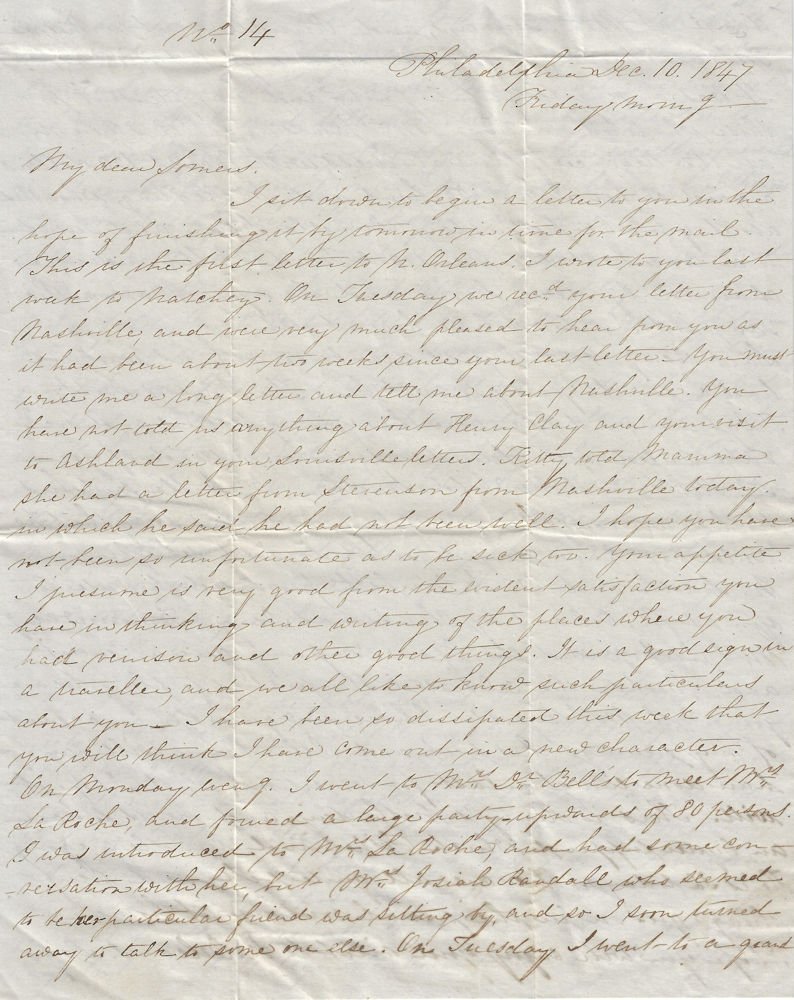 No. 14
Philadelphia Dec. 10. 1847
Friday morng
My dear Somers.
I sit down to begin a letter to you in the
hope of finishing it by tomorrow in time for the mail.
This is the first letter to N. Orleans. I wrote to you last
week to Natchez. On Tuesday we recd. your letter from
Nashville and were very much pleased to hear from you as
it had been about two weeks since your last letter. You must
write me a long letter and tell me about Nashville. You
have not told us anything about Henry Clay and your visit
to Ashland in your Louisville letters. Kitty told Mamma
she had a letter from Stevenson from Nashville today.
in which he said he had not been well. I hope you have
not been so unfortunate as to be sick too. Your appetite
I presume is very good from the evident satisfaction you
have in thinking and writing of the places where you
had venison and other good things. It is a good sign in
a traveller, and we all like to know such particulars
about you – I have been so dissipated this week that
you will think I have come out in a new character.
On Monday eveng. I went to Mrs. Dr. Bells to meet Mrs.
La Roche, and found a large party upwards of 80 persons.
I was introduced to Mrs. La Roche, and had some con-
-versation with her, but Mrs. Josiah Randall who seemed
to be her particular friend was sitting by, and so I soon turned
away to talk to some one else. On Tuesday I went to a grand